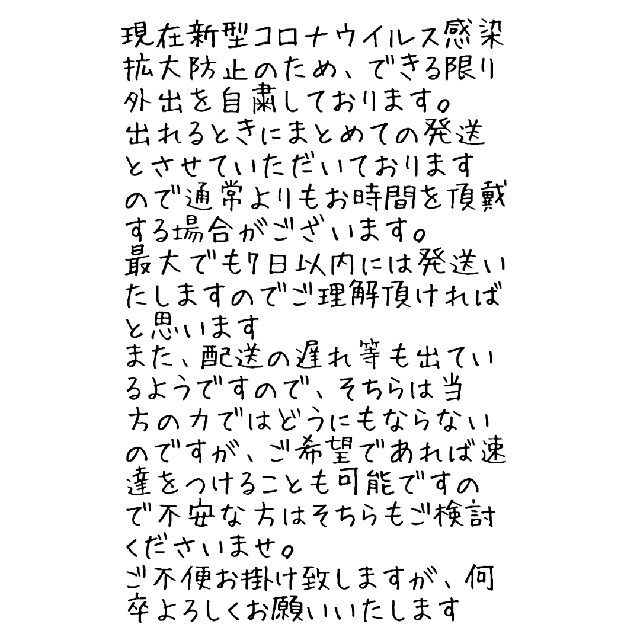 現在新型コロナウイルス感染
拡大防止のため、できる限り
外出を自粛しております。
出れるときにまとめての発送
とさせていただいております
ので通常よりもお時間を頂戴
する場合がございます。
最大でも7日以内には発送い
たしますのでご理解頂ければ
と思います
また、配送の遅れ等も出てい
るようですので、そちらは当
方の力ではどうにもならない
のですが、ご希望であれば速
達をつけることも可能ですの
で不安な方はそちらもご検討
くださいませ。
ご不便お掛け致しますが、何
卒よろしくお願いいたします